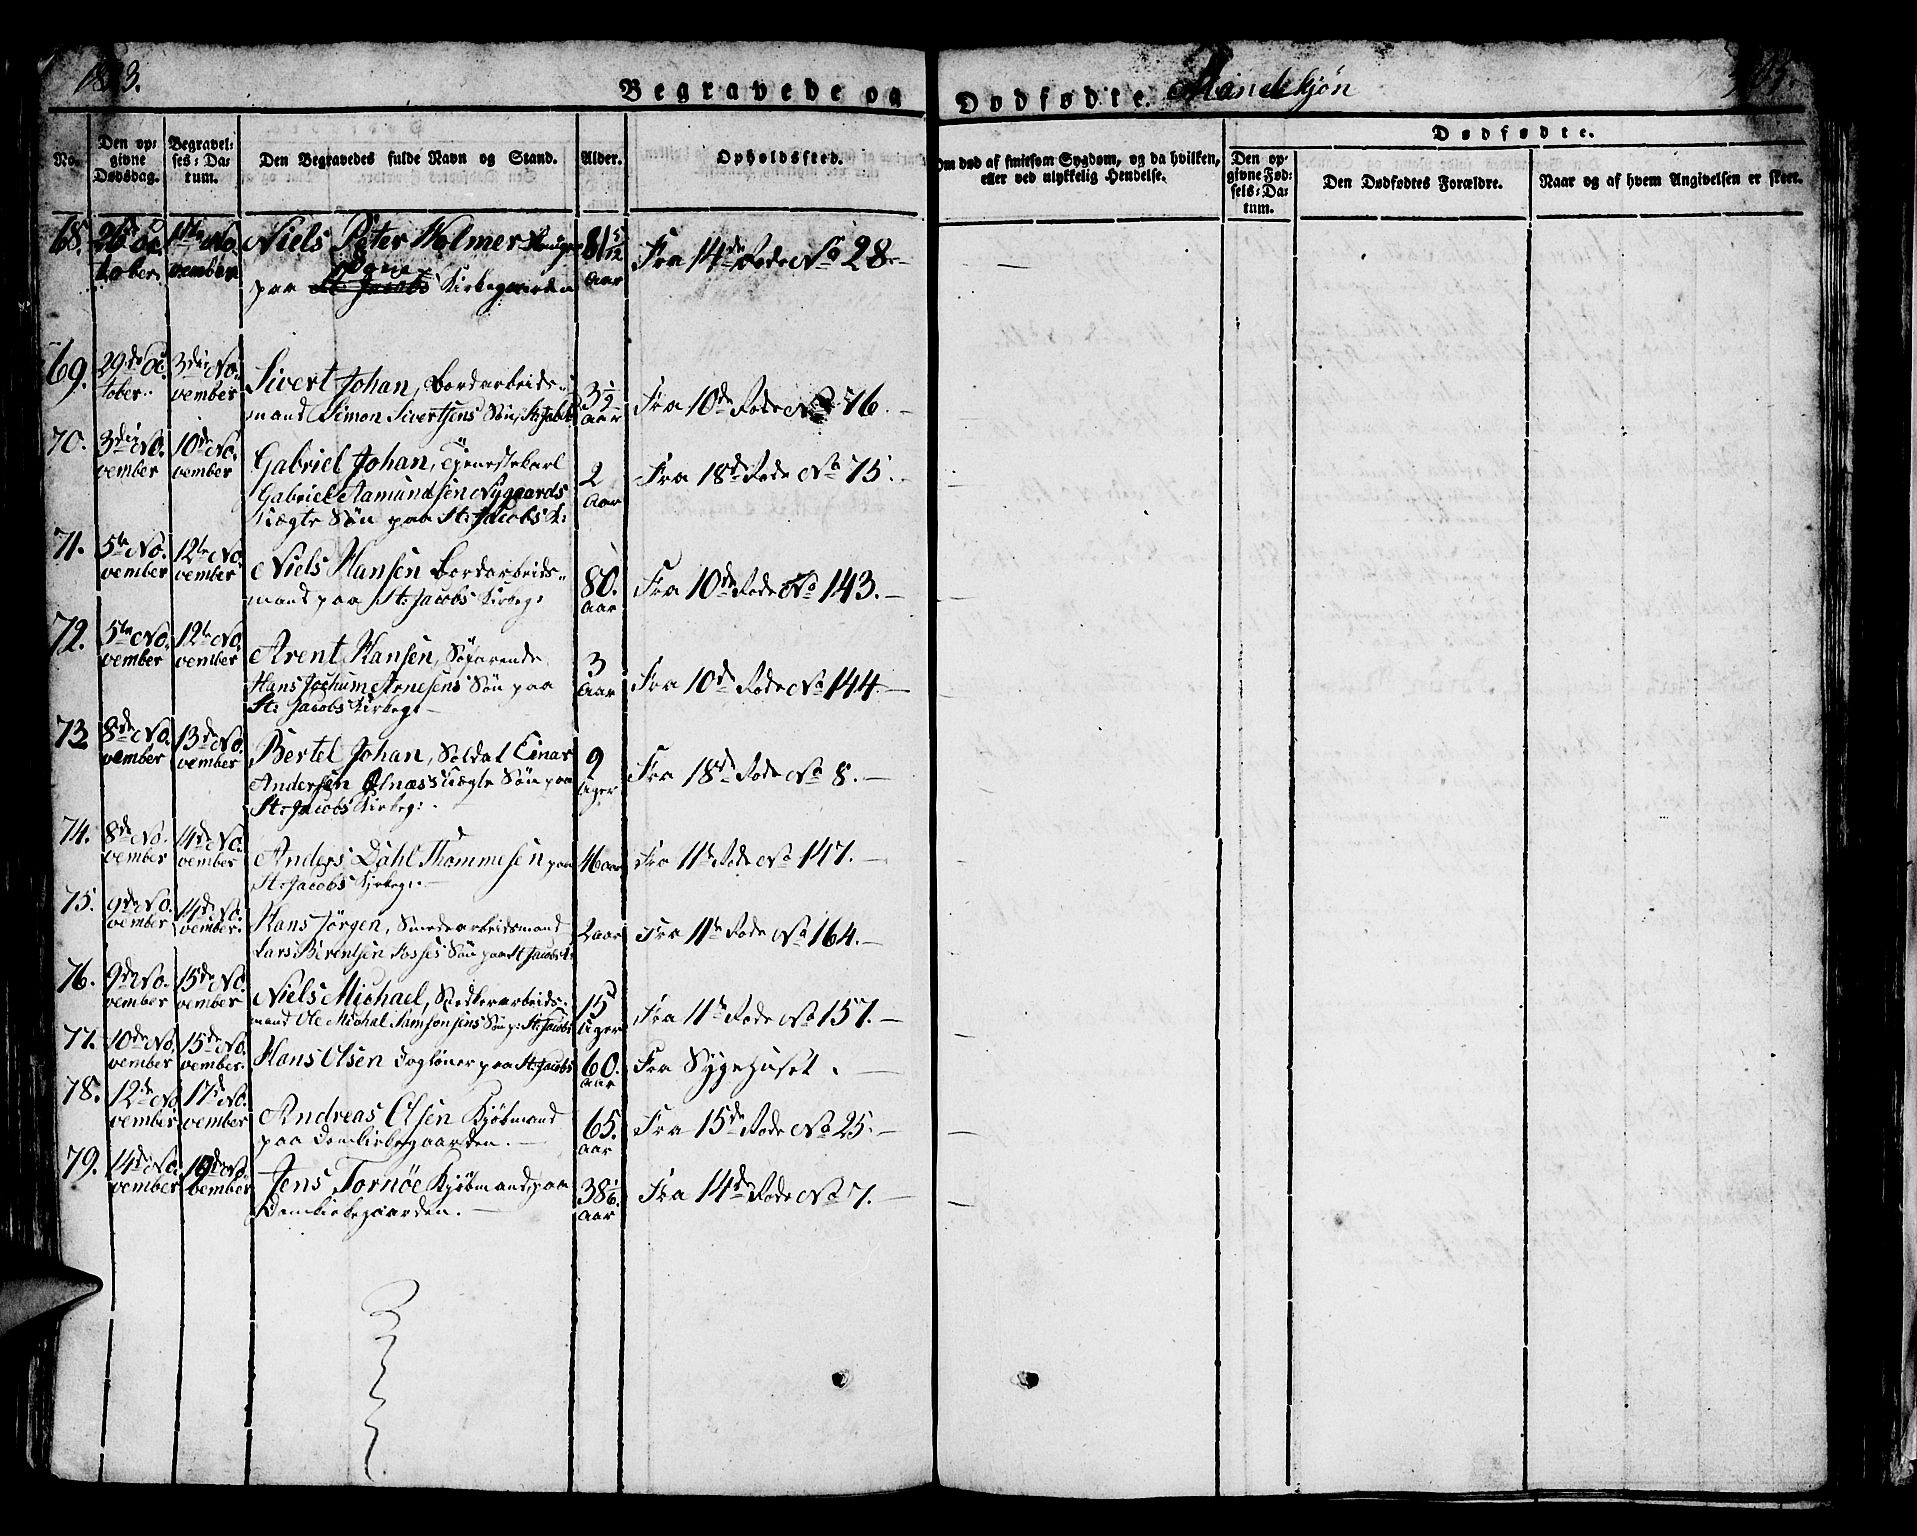 Begravede og Dødfødte. Mandekjøn
No.
Den opgivne Dødsdag.
Begravelses-Datum.
Den Begravedes fulde Navn og Stand.
Alder.
Opholdssted.
Om død af smitsom Sygdom, og da hvilken, eller ved ulykkelig Hendelse.
Dødfødte.
Den opgivne Fødsels-Datum.
Den Dødfødtes Forældre.
Naar og af hvem Angivelsen er skeet.
68. October. 1ste November Niels Peter Wolmer 81 5/12 Fra 14de Rode No 28. —
paa Kirkegaarden Aar
69. 29de October. 3die November Sivert Johan, Bordarbeids-
mand Simon Sivertsens Søn, St. Jacobs 3 1/2 Aar Fra 10de Rode No 76. —
70. 3die November 10de November Gabriel Johan, Tjenestekarl
Gabriel Aamundsen Nygaards
Uægte Søn paa St: Jacobs K: 2 Aar Fra 18de Rode No 75. —
71. 5te November 12te November Niels Hansen Bordarbeids-
mand paa St: Jacobs Kirkeg: 80. Aar Fra 10de Rode No 143. —
72. 5te November 12te November Arent Hansen, Søfarende
Hans Jochum Arnesens Søn paa
St: Jacobs Kirkeg: — 3 Aar Fra 10de Rode No 144. —
73 8de November 13de November Bertel Johan, Soldat Einar
Andersen Uægte Søn paa
St: Jacobs Kirkeg: 9 Uger Fra 18de Rode No 8. —
74. 8de November 14de November Anders Dahl Thommesen paa
St: Jacobs Kirkeg: — 46 aar Fra 11te Rode No 147. —
75. 9de November 14de November Hans Jørgen, Smedearbeidsmand
Lars Berentsen Søn paa St Jacobs K: 2 aar Fra 11te Rode No 164. —
76. 9de November 15de November Niels Michael, arbeids-
mand Ole Michal Samsonsens Søn p: St: Jacobs 15 Uger Fra 11te Rode No 157. —
77. 10de November 15de November. Hans Olsen Dagløner paa St: Jacobs 60. Aar Fra Sygehuset. —
78. 12te November 17de November Andreas Olsen Kjøbmand
paa Domkirkegaarden. — 65. Aar Fra 15de Rode No 25. —
79. 14de November November Jens Tornöe Kjøbmand, paa
Domkirkegaarden. — 38 1/6. Aar Fra 14de Rode No 7. —